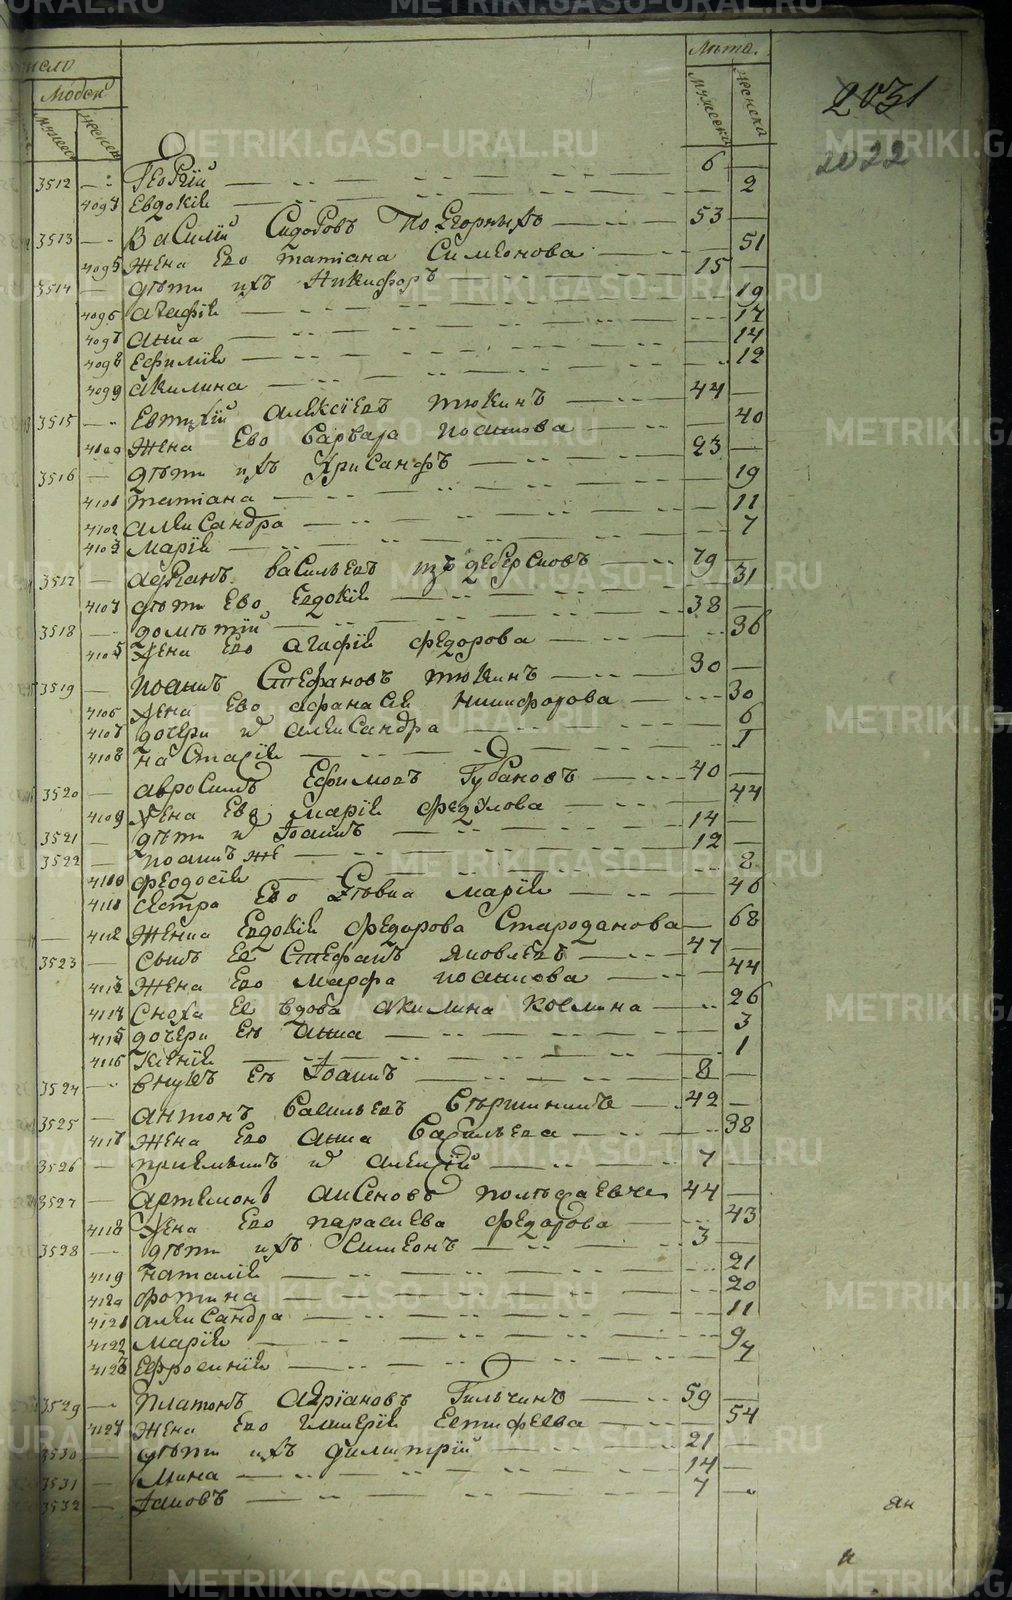 число
Людей
Лѣта.
мужеск
женск
мужеска
женска
2031
2022
3512 Георгій 6
4093 Евдокія 2
3513 Василій Сидоровъ Погорныхъ 53
4095 жена Его Татіана Симеонова 51
3514 дѣти ихъ Никифоръ 15
4096 Агафія 19
4097 Анна 17
4098 Ефимія 14
4099 Акилина 12
3515 Евтихій Алексіевъ Тюкинъ 44
4100 жена Его Варвара Иоаннова 40
3516 дѣти ихъ Хрисанфъ 23
4101 Татіана 19
4102 Александра 11
4103 Марія 7
3517 Адріанъ Васильевъ 79
4104 дѣти Его Евдокія 31
3518 Дометій 38
4105 жена Его Агафія Федорова 36
3519 Иоаннъ Стефановъ Тюкинъ 30
4106 жена Его Афанасія Никифорова 30
4107 дочери и Александра 6
4108 Настасія 1
3520 Авросимъ Ефимовъ Губановъ 40
4109 жена Его Марія Федулова 44
3521 дѣти и Іоаннъ 14
3522 Иоаннъ же 12
4110 Феодосія 8
4111 сестра Его дѣвка Марія 46
4112 женка Евдокія Федорова Староданова 68
3523 сынъ Ея Стефанъ Яковлевъ 47
4113 жена Его Марфа Иоаннова 44
4114 сноха Ея вдова Акилина Козмина 26
4115 дочери Ея Анна 3
4116 Ксенія 1
3524 внукъ Ея Іоаннъ 8
3525 Антонъ Васильевъ 42
4117 жена Его Анна Васильева 38
3526 приемышъ и Алексій 7
3527 Артемонъ Аксеновъ 44
4118 жена Его Параскева Федорова 43
3528 дѣти ихъ Симеонъ 3
4119 Наталія 21
4120 Фотина 20
4121 Александра 11
4122 Марія 9
4123 Ефросинія 7
3529 Платонъ Адріановъ Гильчинъ 59
4124 жена Его Гликерія Евтифеева 54
3530 дѣти ихъ Димитрій 21
3531 Мина 14
3532 Іаковъ 7
METRIKI.GASO-URAL.RU